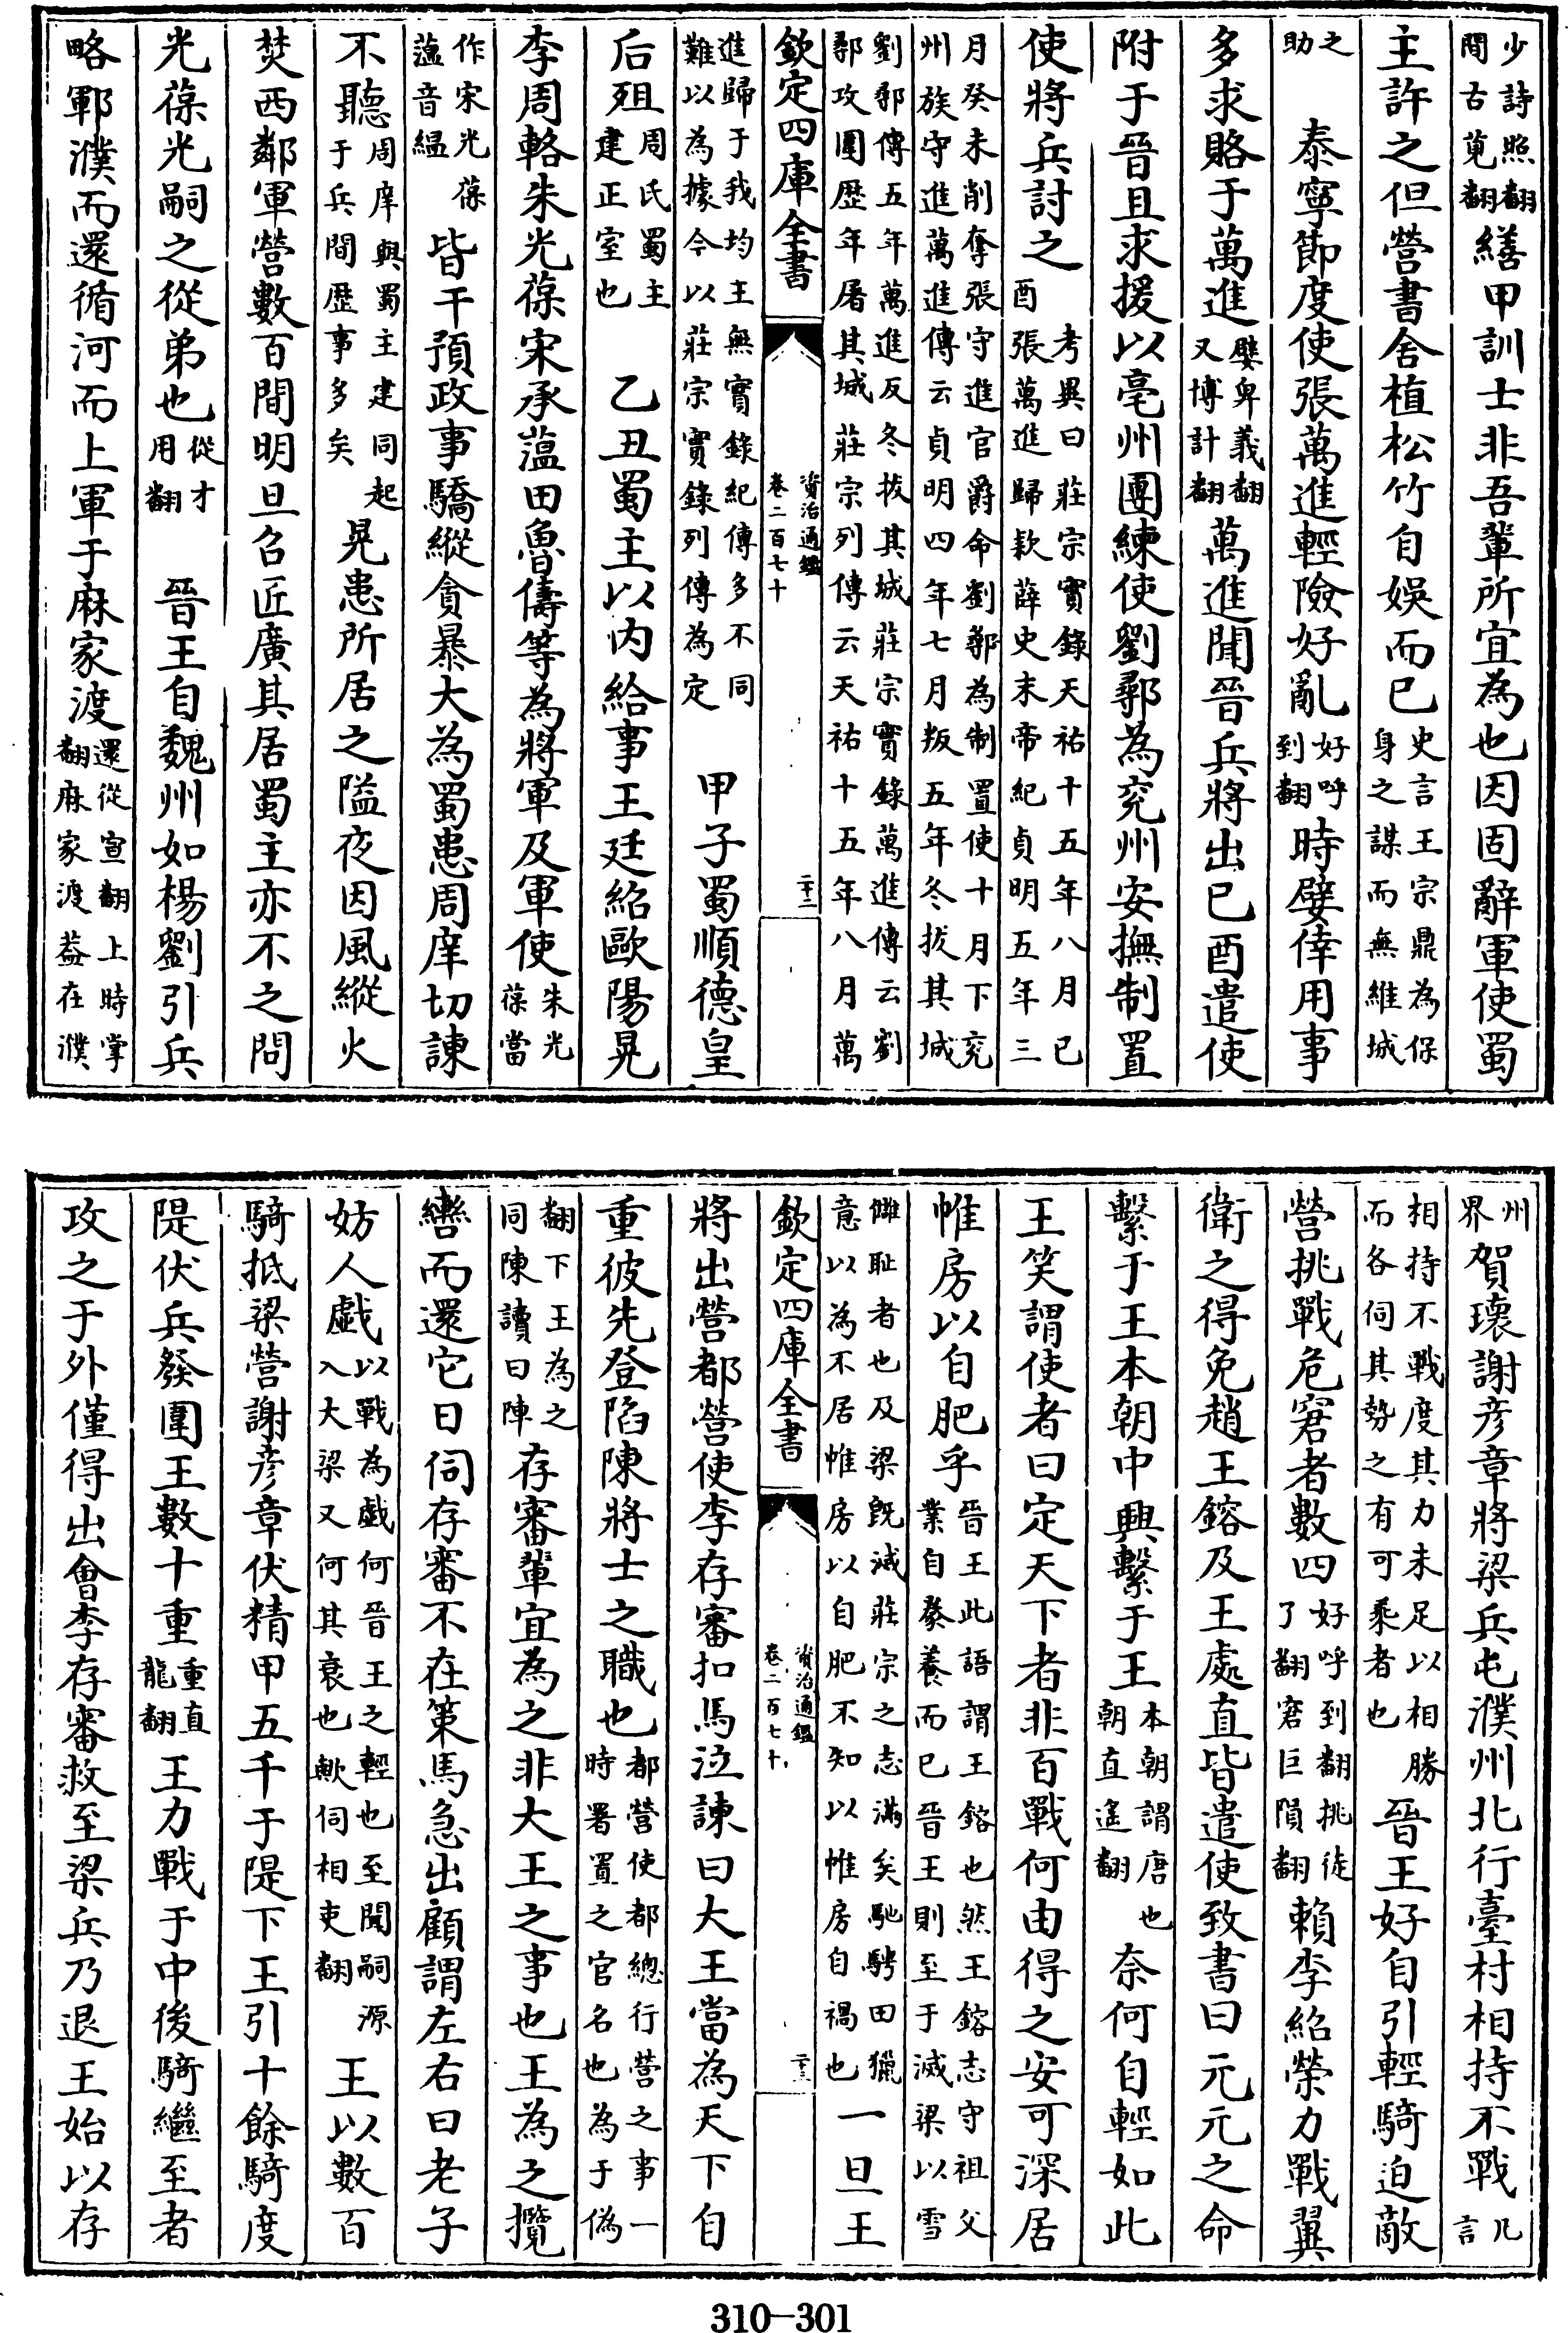 少詩照翻間古莧翻繕甲訓士非吾輩所宜為也因固辭軍使蜀
主許之但營書舍植松竹自娛而已史言王宗鼎為保身之謀而無維城
之助　泰寧節度使張萬進輕險好亂好呼到翻時嬖倖用事
多求賂于萬進嬖卑義翻又博計翻萬進聞晉兵將出已酉遣使
附于晉且求援以亳州團練使劉鄩為兗州安撫制置
使將兵討之考異曰莊宗實錄天祐十五年八月已酉張萬進歸款薛史末帝紀貞明五年三
月癸未削奪張守進官爵命劉鄩為制置使十月下兗州族守進萬進傳云貞明四年七月叛五年冬拔其城
劉鄩傳五年萬進反冬拔其城莊宗實錄萬進傳云劉鄩攻圍歷年屠其城莊宗列傳云天祐十五年八月萬
欽定四庫全書　資治通鑑卷二百七十　二十二
進歸于我均主無實錄紀傳多不同難以為據今以莊宗實錄列傳為定　甲子蜀順德皇
后殂周氏蜀主建正室也　乙丑蜀主以内給事王廷紹歐陽晃
李周輅朱光葆宋承薀田魯儔等為將軍及軍使朱光葆當
作宋光葆薀音緼皆干預政事驕縱貪暴大為蜀患周庠切諫
不聽周庠與蜀主建同起于兵間歷事多矣晃患所居之隘夜因風縱火
焚西鄰軍營數百間明旦召匠廣其居蜀主亦不之問
光葆光嗣之從弟也從才用翻　晉王自魏州如楊劉引兵
略鄆濮而還循河而上軍于麻家渡還從宣翻上時掌翻麻家渡蓋在濮
州界賀瓌謝彥章將梁兵屯濮州北行臺村相持不戰凡言
相持不戰度其力未足以相勝而各伺其勢之有可乘者也　晉王好自引輕騎迫敵
營挑戰危窘者數四好呼到翻挑徒了翻窘巨隕翻賴李紹榮力戰翼
衛之得免趙王鎔及王處直皆遣使致書曰元元之命
繫于王本朝中興繫于王本朝謂唐也朝直遙翻奈何自輕如此
王笑謂使者曰定天下者非百戰何由得之安可深居
帷房以自肥乎晉王此語謂王鎔也然王鎔志守祖父業自豢養而已晉王則至于滅梁以雪
讎恥者也及梁旣滅莊宗之志滿矣馳騁田獵意以為不居帷房以自肥不知以帷房自禍也一旦王
欽定四庫全書　資治通鑑卷二百七十　二十三
將出營都營使李存審扣馬泣諫曰大王當為天下自
重彼先登陷陳將士之職也都營使都總行營之事一時署置之官名也為于偽
翻下王為之同陳讀曰陣存審輩宜為之非大王之事也王為之攬
轡而還它日伺存審不在策馬急出顧謂左右曰老子
妨人戲以戰為戲何晉王之輕也至聞嗣源入大梁又何其衰也歟伺相吏翻　王以數百
騎抵梁營謝彥章伏精甲五千于隄下王引十餘騎度
隄伏兵發圍王數十重重直龍翻王力戰于中後騎繼至者
攻之于外僅得出會李存審救至梁兵乃退王始以存
310-301